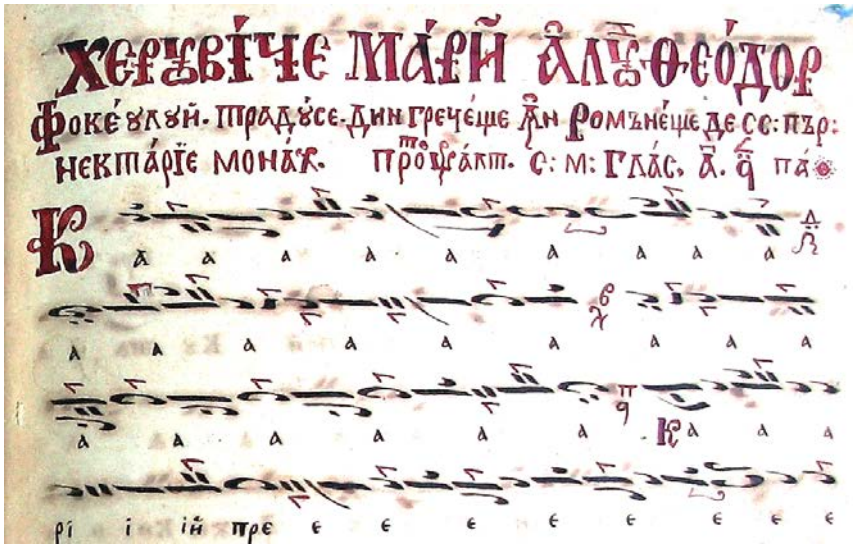 ХЕРꙊВІ́ЧЕ МА́РЙ А҆ЛꙊ҆ ѲЕО́ДОР
Фоке́ꙋлꙋй. Традꙋ́се. Дин грече́ще ꙟ҆н Ромъне́ще де сс: пър:
нектáрїе монáх. протоѱáлт. с: м: Глáс. а҃. па
К а а а а а а а а а
а а а а а а а а а
а а а а а а К а а а
рі і ій пре е е е е е е е е